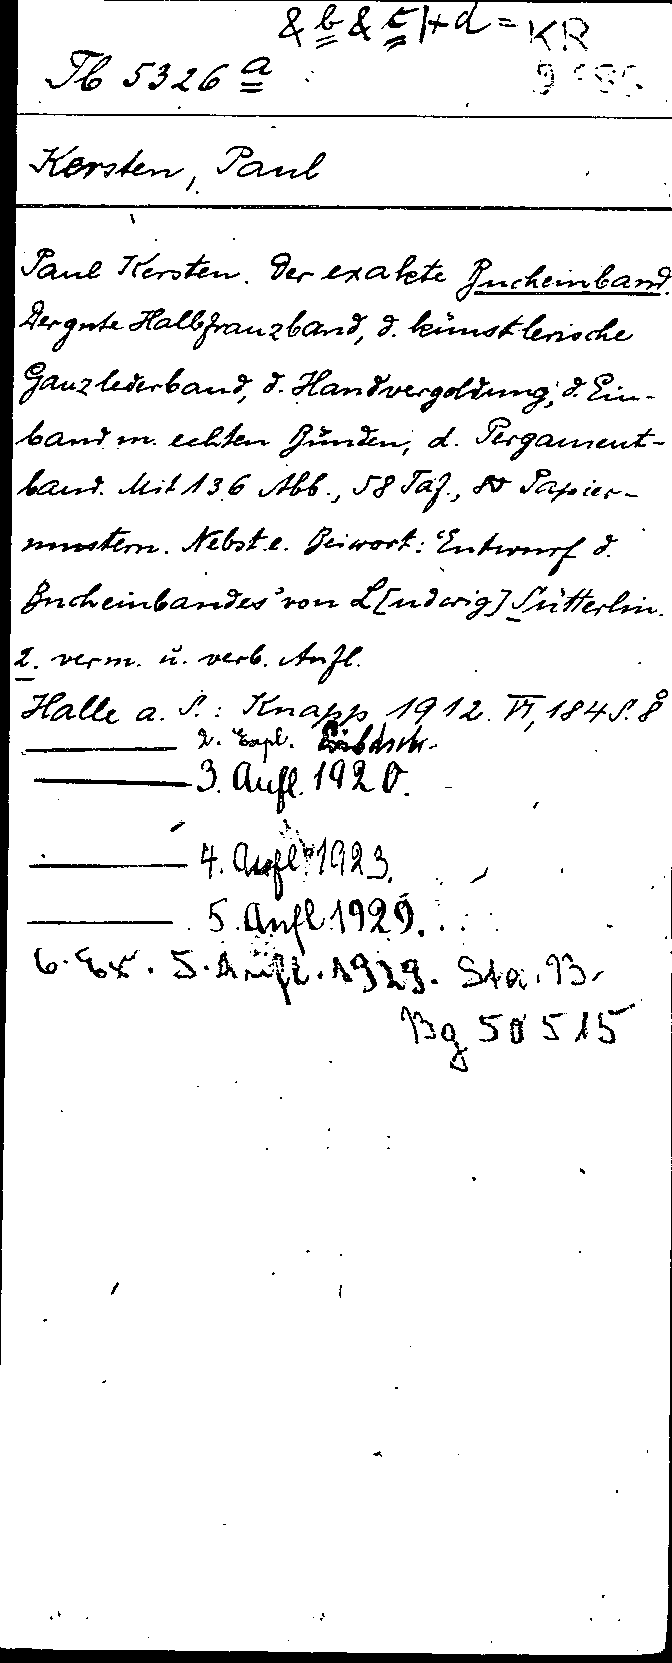 & b & c + d = KR
Tb 5326 a
Kersten, Paul
Paul Kersten. Der exakte Bucheinband.
Der gute Halbfranzband, d. künstlerische
Ganzlederband, d. Handvergoldung, d. Ein-
band m. echten Bünden, d. Pergament-
band. Mit 136 Abb., 58 Taf., 80 Papier-
mustern. Nebst e. Beiwort: 'Entwurf d.
Bucheinbandes' von L[udwig] Sütterlin.
2. verm. u. verb. Aufl.
Halle a. S.: Knapp 1912. VI, 184 S. 8°
2. Expl.
3. Aufl. 1920.
4. Aufl. 1923.
5. Aufl 1929.
6. Ex. 5. Aufl. 1929. Sta. B.
Bg 50515